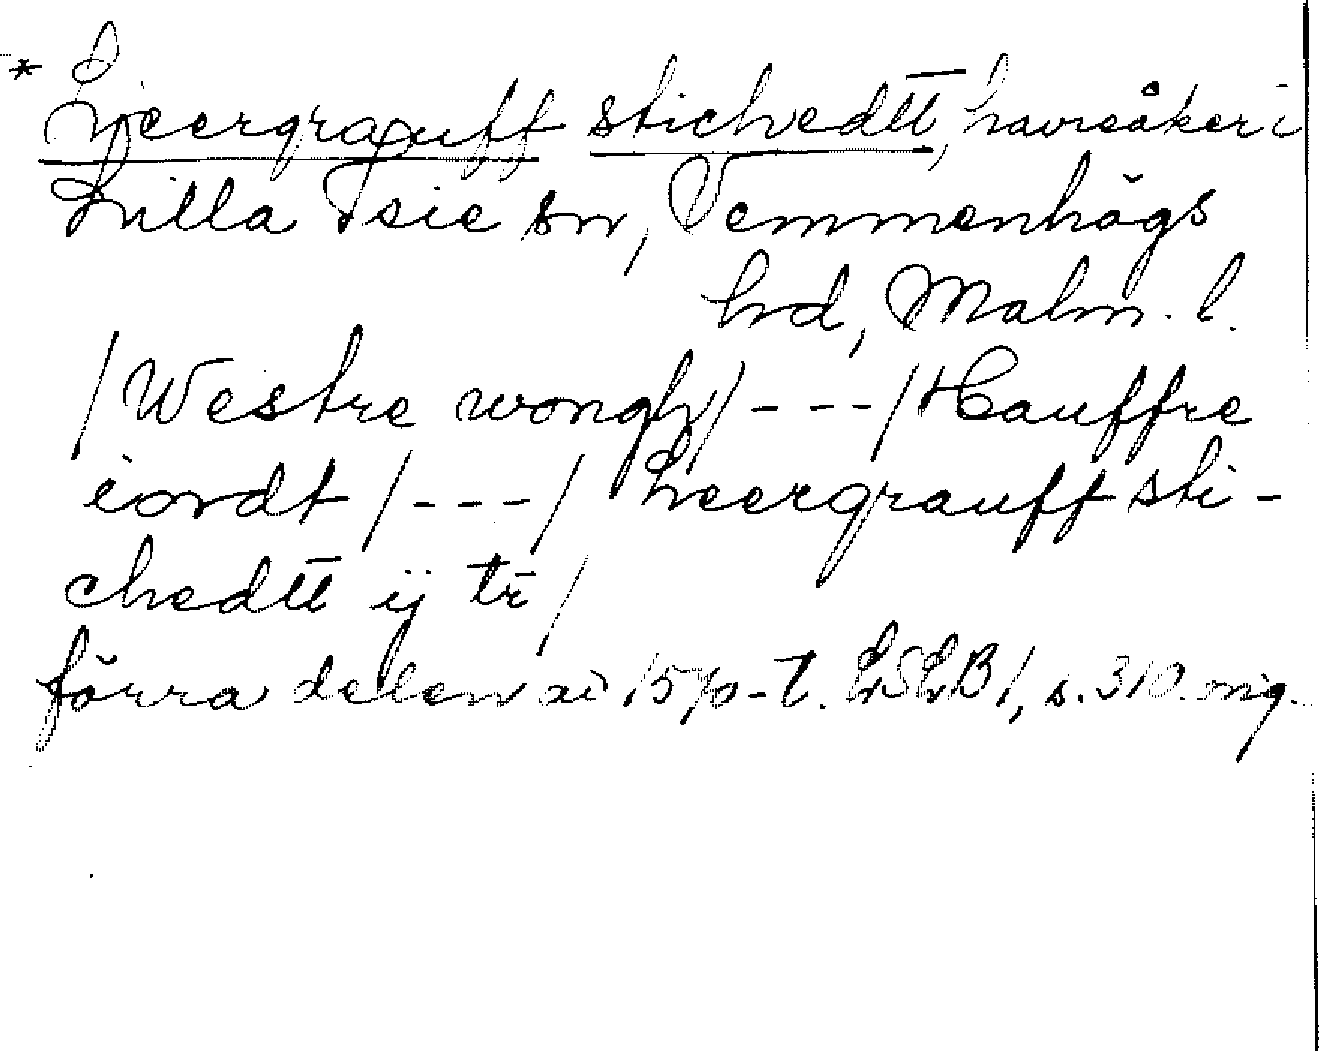 * Leergrauff stichedtt, havreåker i
Lilla Isie sn, Vemmenhögs
hd, Malm. l.
/Westre wongh/---/Hauffre
iordt/---/ Leergrauff sti-
chedtt ij tr̄/
förra delen av 1570-t. LSLB 1, s. 310. orig.